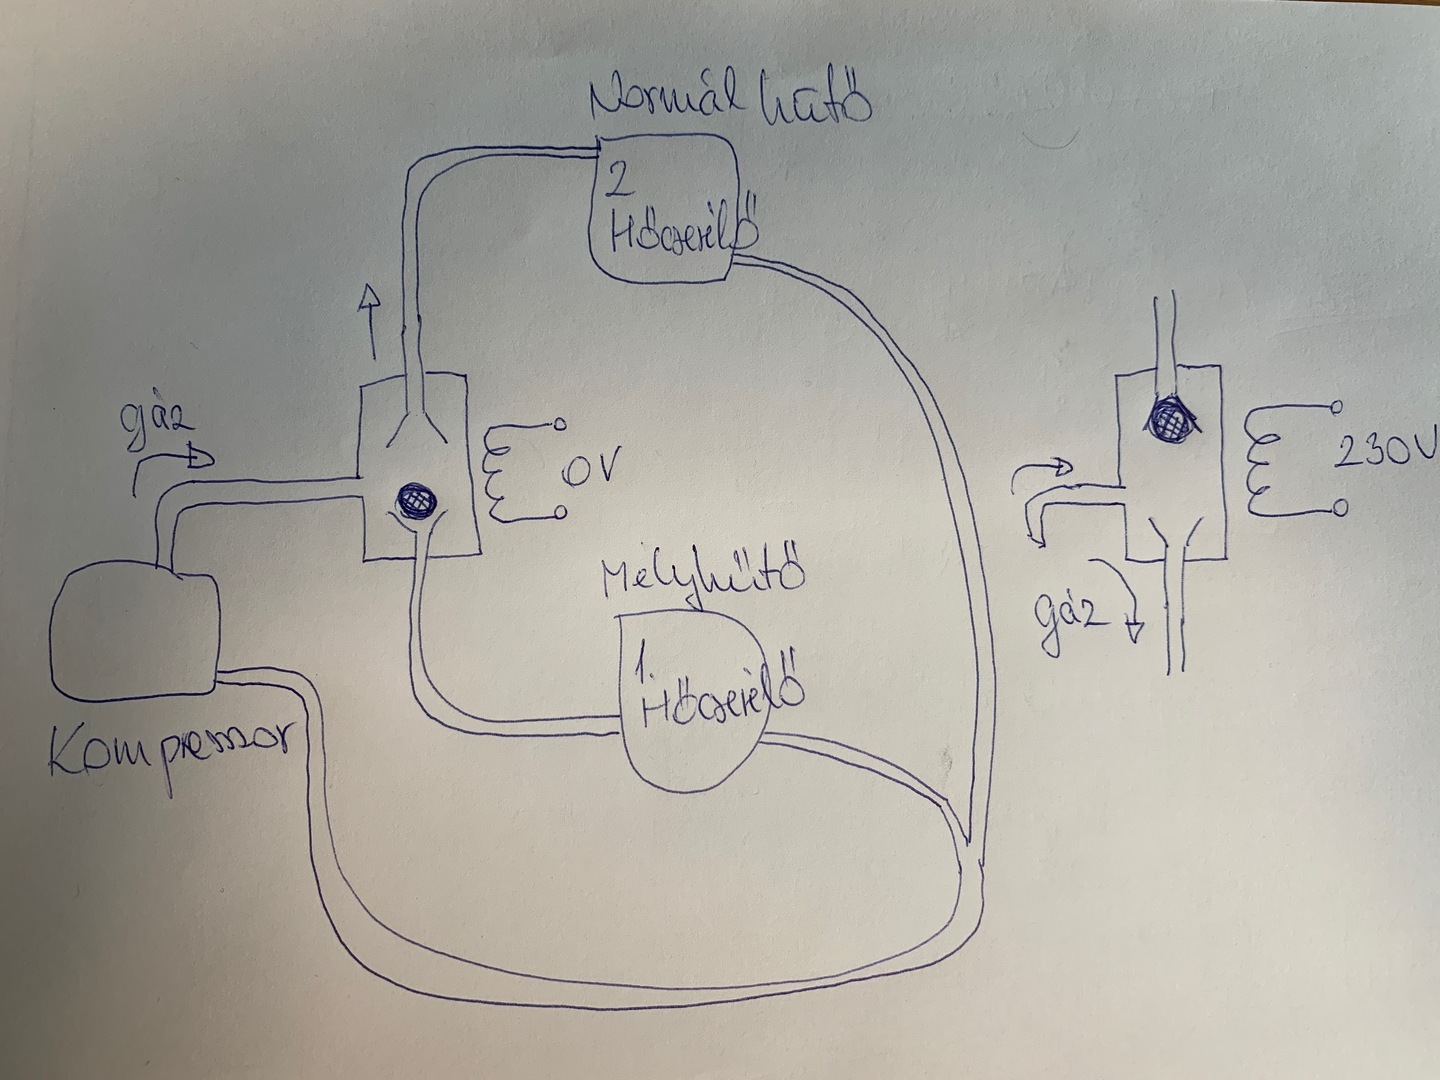 Normál hűtő
2
Hőcserélő
gáz
0V
230V
Mélyhűtő
gáz
1.
Hőcserélő
Kompressor